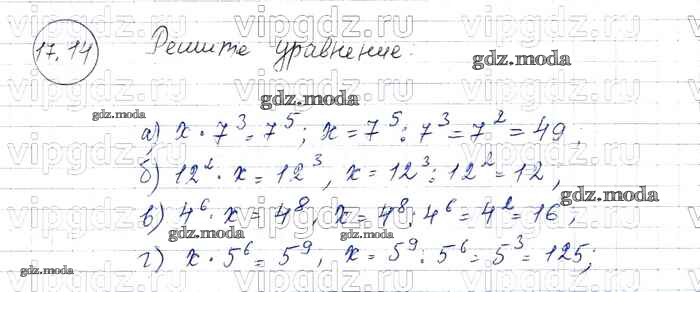 vipgdz.ru vipgdz.ru vipgdz.ru
17.14 Решите уравнение:
gdz.moda
gdz.moda
gdz.moda
а) x · 7³ = 7⁵; x = 7⁵ : 7³ = 7² = 49;
б) 12² · x = 12³, x = 12³ : 12² = 12,
gdz.moda
в) 4⁶ · x = 4⁸, x = 4⁸ : 4⁶ = 4² = 16;
gdz.moda
г) x · 5⁶ = 5⁹, x = 5⁹ : 5⁶ = 5³ = 125;
gdz.moda